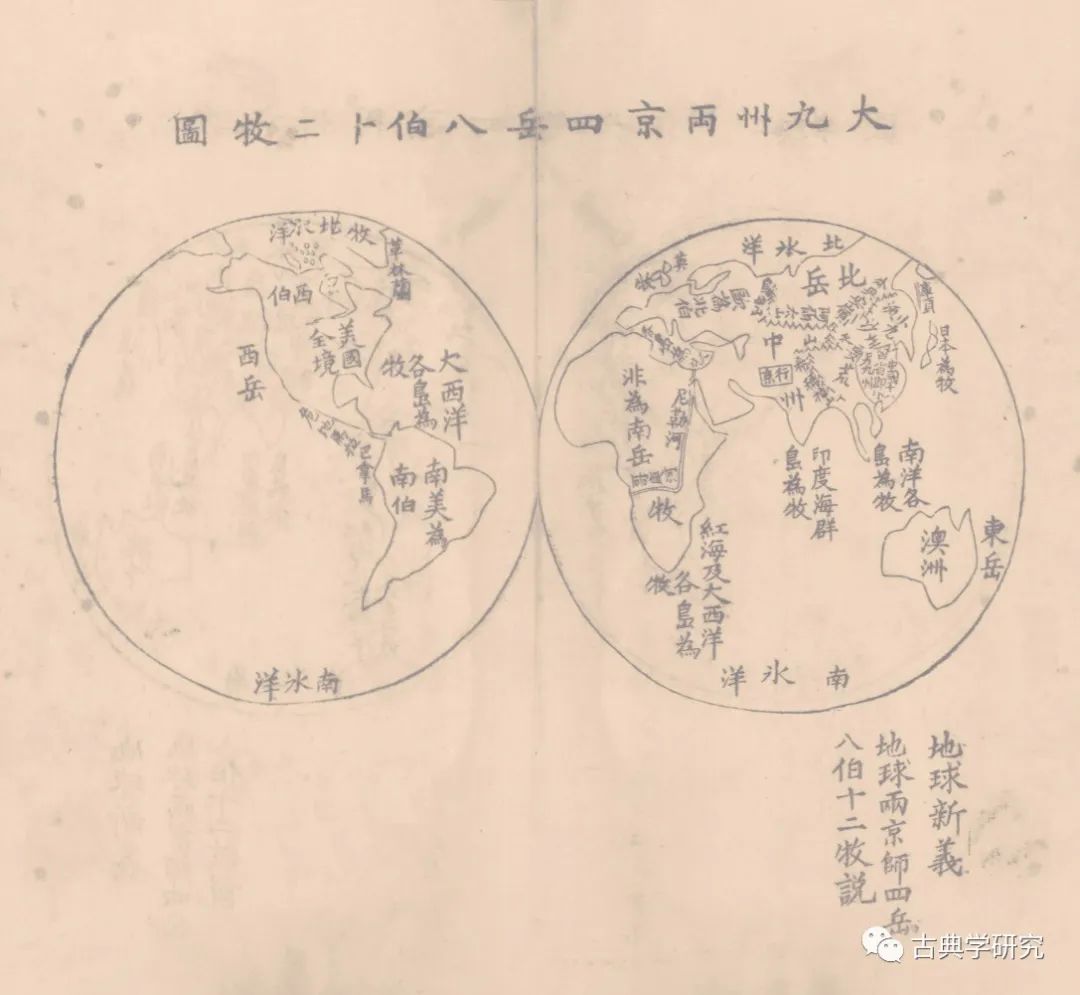 大九州两京四岳八伯十二牧圖
北冰洋
北岳
英
牧
歐為
北伯
中
州
行京
庫頁
日本為牧
非為南岳
尼勒河
牧
印度海群
島為牧
南洋各
島為牧
東岳
澳洲
紅海及大西洋
各島為
牧
南冰洋
牧北冰洋
革林蘭
西伯
美國
全境
西岳
大西洋
各島為
牧
巴拿馬
南美為
南伯
南冰洋
地球新義
地球兩京師四岳
八伯十二牧説
古典学研究